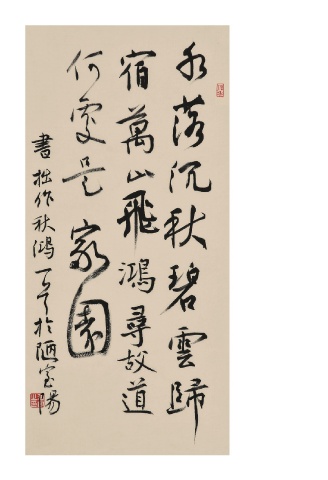 水落沉秋碧雲歸
宿萬山飛鴻尋故道
何處是家園
書拙作秋鴻於陋室